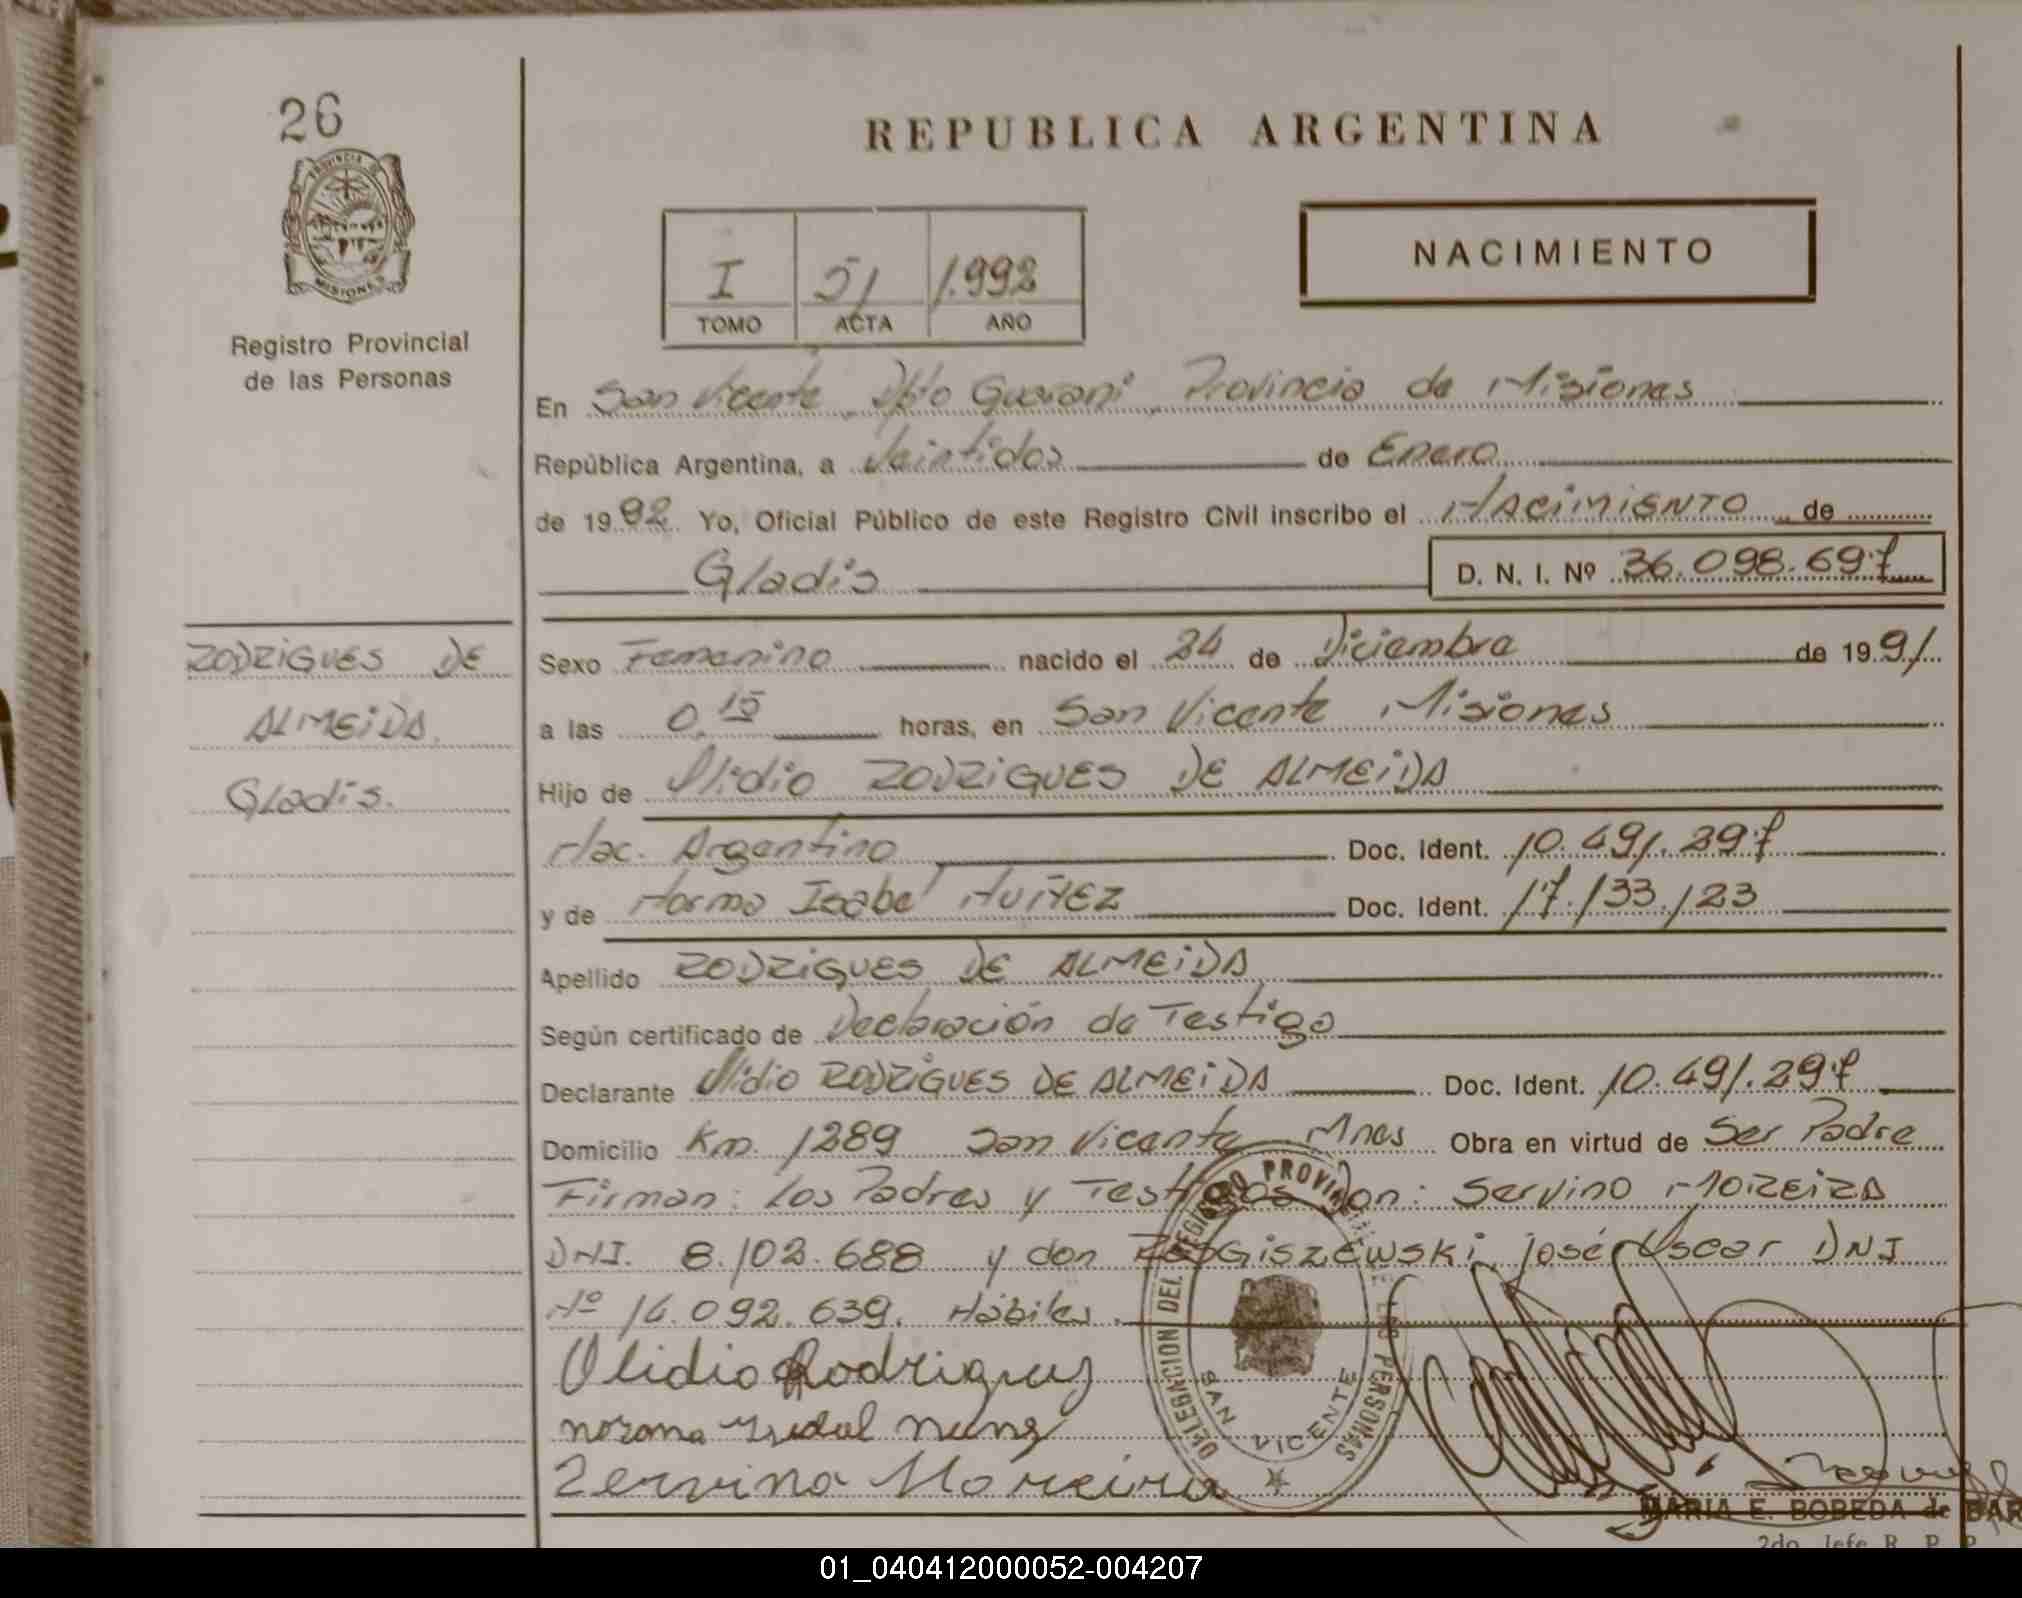 26
PROVINCIA DE
MISIONES
Registro Provincial
de las Personas
REPUBLICA ARGENTINA
NACIMIENTO
I 51 1.992
TOMO ACTA AÑO
En San Vicente, Dpto Guarani, Provincia de Misiones
República Argentina, a Veintidos de Enero
de 1992 Yo, Oficial Público de este Registro Civil inscribo el NACIMIENTO de
Gladis D. N. I. Nº 36.098.697
RODRIGUES DE
ALMEIDA.
Gladis.
Sexo Femenino nacido el 24 de Diciembre de 1991
a las 0,15 horas, en San Vicente Misiones
Hijo de Olidio RODRIGUES DE ALMEIDA
Nac. Argentino Doc. Ident. 10.491.297
y de Norma Isabel NUÑEZ Doc. Ident. 17.133.123
Apellido RODRIGUES DE ALMEIDA
Según certificado de Declaración de Testigo
Declarante Olidio RODRIGUES DE ALMEIDA Doc. Ident. 10.491.297
Domicilio Km. 1289 San Vicente Mnes Obra en virtud de Ser Padre
Firman: Los Padres y Testigos Don: Servino MOREIRA
DNI. 8.102.688 y don José Oscar DNI
Nº 14.092.639. Hábiles.
Olidio Rodrigues
Zervino Moreira
DELEGACION DEL REGISTRO PROVINCIAL DE LAS PERSONAS
SAN VICENTE
MARIA E. BOBEDA de BAR
2do. Jefe R. P. P.
01_040412000052-004207